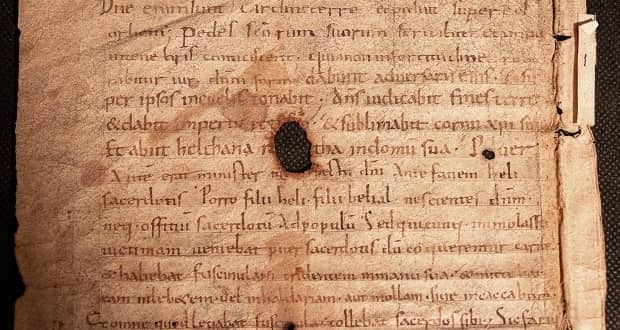 enim sunt cardines terre & posuit super eos
orbem; Pedes scorum suorum &
intenebris conticiscent . quia non infortitudine
rabitur vir . dnm dabunt adversarii eius . & su
per ipsos incelis tonabit . dns iudicabit fines terre
& dabit imperiu & sublimabit cornu xpi sui
Et abiit helchana tha indomu sua . Puer
Aute erat minister dni Ante faciem heli
sacerdotis Porro filii heli . filii belial nescientes dnm .
neq . offitiu sacerdotu Adpopulu Sed quicunq immolass
uictimam veniebat puer sacerdotis du coquerentur carne
& habebat fuscinulam tridentem inmanu sua & mittebat
eam inlebetem . vel incaldariam . aut inollam . siue incaccabu
Et omne quod levabat fuscinula tollebat sacerdos sibi . Sic